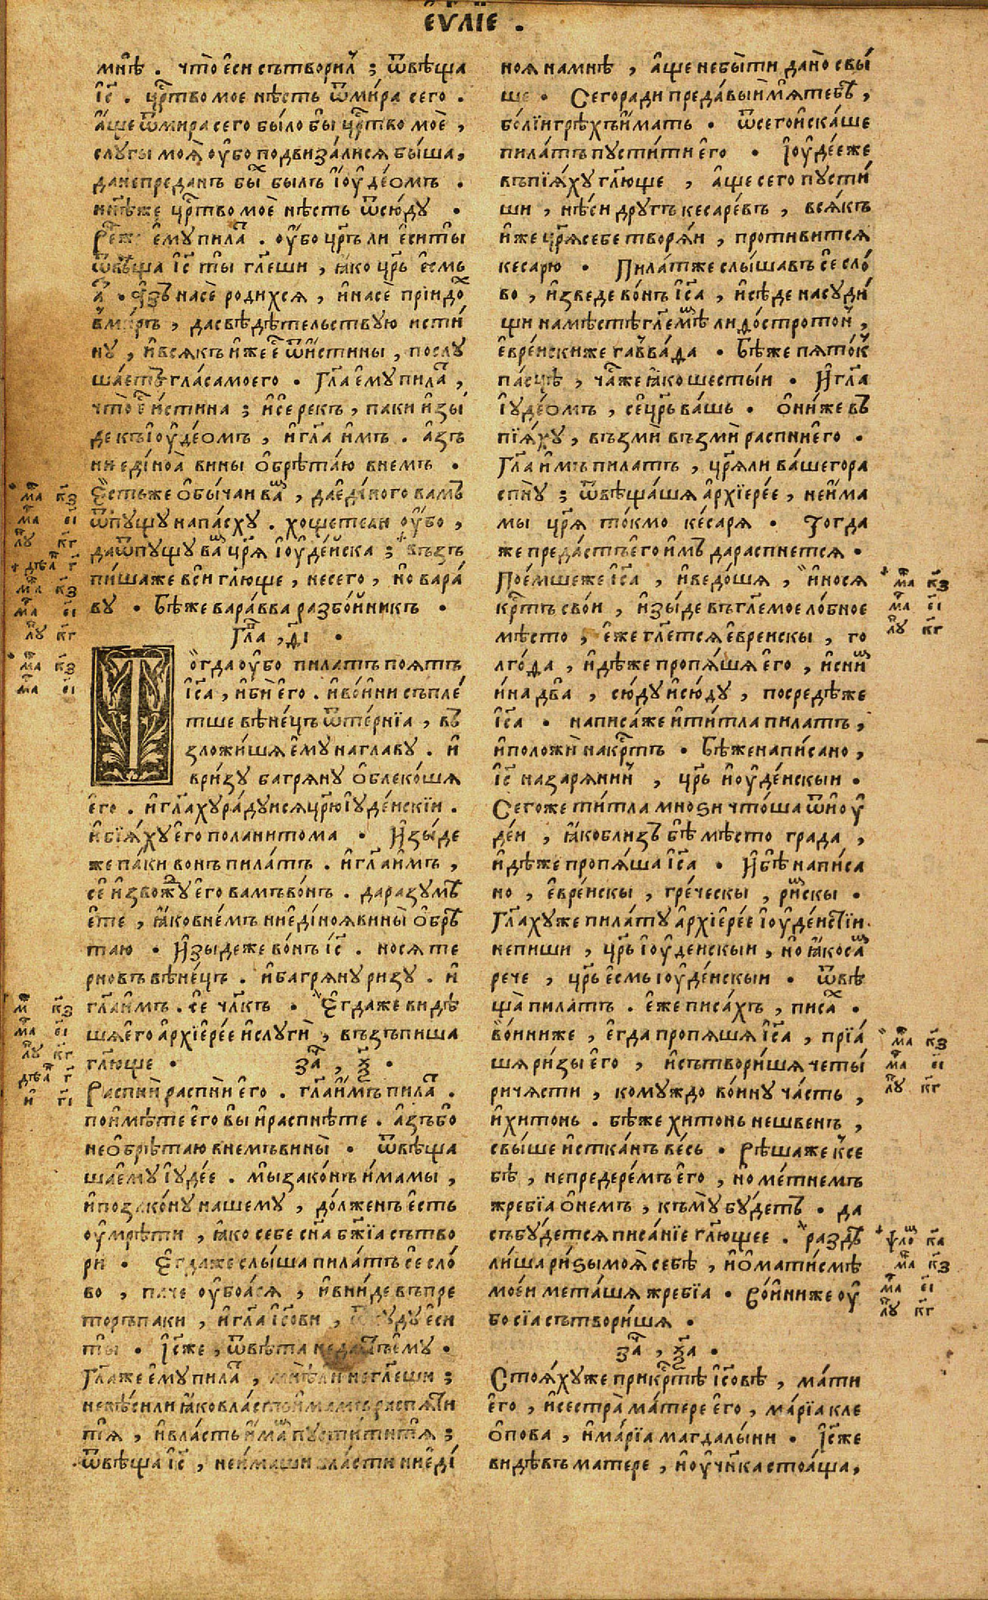 єѵⷢ҇лїе .
мнѣ . что̀ є҆сѝ сътвори́лъ ; ѿвѣща
і҆с҃ . црⷭ҇тво мое нѣсть ѿ ми́ра сего .
а҆ще ѿ мира сего бы́ло бы црⷭ҇тво моѐ ,
слугы моѧ̀ оу҆бо подвиза́лисѧ бы́ша ,
да не преданъ быⷯ былъ і҆оу҆де́ѡмъ .
нн҃ѣ же црⷭ҇тво моѐ нѣсть ѿсю́ду .
є҆му пилаⷮ . оу҆бо цр҃ь ли є҆сѝ ты̀
ѿвѣща і҆с҃ ты гл҃еши , ꙗ҆ко цр҃ь є҆смь
а҆зъ на сѐ родихсѧ , и҆ на сѐ прїидоⷯ
в миръ , да свѣдѣтельствую исти́
ну , и҆ всѧкъ и҆же є҆ⷭ҇ ѿ и҆стины , послу
шаетъ гла́са моего . Гл҃а є҆му пилаⷮ ,
что̀ є҆ⷭ҇ и҆стина ; и҆ се рекъ , паки и҆зы́
де къ і҆оу҆де́ѡмъ , и҆ гл҃а и҆мъ . азъ
ни є҆ди́ноѧ вины ѻ҆брѣта́ю в немъ .
Є҆сть же ѻ҆бы́чаи ваⷨ , да є҆ди́ного вамъ
ѿпущу на па́сху . хощете ли оу҆бо ,
да ѿпущу ваⷨ цр҃ѧ і҆оу҆де́йска ; възъ
пи́ша же вси гл҃юще , не сего , но вара́
ву . бѣ же вара́вва разбо́йникъ .
Гла , д҃і .
Тогда оу҆бо пилатъ поѧтъ
і҆с҃а , и҆ би̇̀ є҆го . и҆ во́ини съпле́
тше вѣне́цъ ѿ те́рнїа , въ
зложи́шѧ є҆му на главу . и҆
в ри́зу багрѧну ѻ҆блеко́шѧ
єго . и҆ гл҃аху ра́дуисѧ цр҃ю і҆уде́искїи .
и҆ бїѧ́ху є҆го по ланитома . И҆зы́де
же паки вонъ пила́тъ . и҆ гл҃а и҆мъ ,
се́ и҆звожⷣу є҆го вамъ во́нъ . да разумѣ
є҆те , ꙗ҆ко в не́мъ ни є҆ди́ноѧ вины̀ ѻ҆брѣ
таю . И҆зы́де же во́нъ і҆с҃ . носѧ те
рновъ вѣне́цъ . и҆ багрѧну ри́зу . и҆
гл҃а и҆мъ . се чл҃къ . Є҆гда же видѣ
шѧ є҆го а҆рхїере́е и҆ слугѝ , възъпиша
гл҃юще . заⷱ , ѯ҃ .
Распнѝ распнѝ є҆го . гл҃а и҆́мъ пилаⷮ .
поимѣте є҆го вы̀ и҆ распнѣте . а҆зъ бо
не ѻ҆брѣтаю в немъ вины̀ . ѿвѣща
ша є҆му і҆уде́е . мы̀ зако́нъ и҆́мамы ,
и҆ по зако́ну нашему , до́лженъ є҆сть
оу҆мрѣти , ꙗ҆ко себе сн҃а бж҃їа сътво
ри . Є҆гда же слы́ша пила́тъ се сло́
во , паче оу҆боа́сѧ , и҆ вни́де въ пре
торъ паки , и҆ гл҃а і҆с҃ови , ѿкуду є҆си
ты . І҆с҃ же , ѿвѣта не дастъ є҆му .
Гл҃а же є҆му пилаⷮ , мнѣ ли не гл҃еши ;
не вѣси ли ꙗ҆ко власть и҆мамъ распѧти
тѧ , и҆ власть и҆́маⷨ пусти́ти тѧ ;
ѿвѣща і҆с҃ , не и҆́маши власти ни є҆ди́
ноѧ на мнѣ , а҆ще не бы́ти дано̀ свы́
ше . Сего ра́ди преда́выи мѧ̀ тебѣ ,
бо́лїи грѣхъ и҆́мать . ѿ сего и҆ска́ше
пила́тъ пусти́ти є҆го . І҆оу҆де́е же
въпїѧ́ху гл҃юще , а҆ще сего пусти́
ши , нѣси дру́гъ кеса́ревъ , всѧ́къ
и҆же цр҃ѧ себе творѧ́и , проти́витсѧ
кесарю . Пила́тъ же слы́шавъ се сло́
во , и҆зведе во́нъ і҆с҃а , и҆ сѣ́де на суди́
щи на мѣстѣ гл҃емѣⷨ лиѳо́стротон ,
є҆вре́иски же гаⷡ҇ва́ѳа . Бѣ же пѧто́къ
па́сцѣ , ча́ⷭ҇ же ꙗ҆ко шесты́и . И҆ гл҃а
і҆уде́ѡмъ , се́ цр҃ь ва́шь . ѻ҆ни́ же въ
пїѧ́ху , възмѝ възмѝ распни є҆го .
Гл҃а и҆мъ пила́тъ , цр҃ѧ ли ва́шего ра
спну́ ; ѿвѣща́шѧ а҆рхїере́е , не и҆́ма
мы цр҃ѧ то́кмо ке́сарѧ . Тогда
же предастъ є҆го и҆мъ да распнетсѧ .
Пое́мше же і҆с҃а , и҆ ведо́шѧ , и҆ носѧ
крⷭ҇тъ сво́и , и҆зы́де въ гл҃емое ло́бное
мѣсто , є҆же гл҃етсѧ є҆вреискы , го
лго́ѳа , и҆дѣже пропѧ́шѧ є҆го , и҆ с ниⷨ
и҆на два̀ , сю́ду и҆ сю́ду , посредѣ же
і҆с҃а . написа́ же и҆ ти́тла пила́тъ ,
и҆ положѝ на крⷭ҇тъ . Бѣ же напи́сано ,
і҆с҃ назарѧни́нъ , цр҃ь и҆оу҆де́искыи .
Сего же ти́тла мноѕи что́ша ѿ и҆оу҆
деи , ꙗ҆ко бли́зъ бѣ̀ мѣсто града ,
и҆дѣже пропѧ́ша і҆с҃а . И҆ бѣ̀ написа
но , є҆вре́искы , гре́ческы , ри́мⷨскы .
Гл҃аху же пила́ту а҆рхїере́е і҆оу҆де́истїи
не пиши , цр҃ь і҆оу҆де́искыи , но ꙗ҆ко саⷨ
рече , цр҃ь є҆смь і҆оу҆де́искыи . ѿвѣ
ща̀ пила́тъ . є҆же писа́хъ , писаⷯ .
Во́ини же , є҆гда пропѧ́шѧ і҆с҃а , прїѧ́
шѧ ри́зы є҆го , и҆ сътвори́шѧ четы́
ри ча́сти , кому́ждо во́ину ча́сть ,
и҆ хито́нъ . бѣ́ же хито́нъ нешвенъ ,
свы́ше и҆стка́нъ ве́сь . Рѣша же к се
бѣ̀ , не предере́мъ є҆го , но ме́тнемъ
жребїа ѻ҆ немъ , къмꙋ̀ бу́детъ . да
събу́детсѧ писа́нїе гл҃ющее . раздѣ
ли́ша ри́ѕы моѧ̀ себѣ̀ , и҆ ѻ҆ мати́смѣ
мое́и мета́шѧ жре́бїа . Во́ини же оу҆
бо сїа сътвори́шѧ .
заⷱ , ѯ҃а .
Стоѧ́ху же при крⷭ҇тѣ і҆с҃овѣ , ма́ти
є҆го , и҆ сестра̀ ма́тере є҆го , ма́рїа кле
ѻ҆пова , и҆ ма́рїа магдалы́ни . І҆с҃ же
ви́дѣвъ матере , и҆ оу҆чн҃ка стоа́ща ,